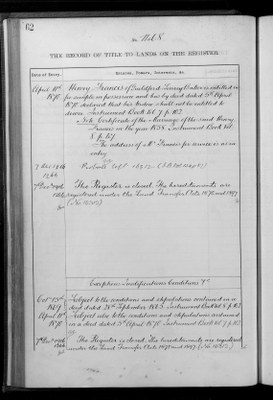 62
No. 1168
THE RECORD OF TITLE TO LANDS ON THE REGISTER.
Date of Entry.
Estates, Powers, Interests, &c.
April 11th 1870
Henry Francis of Guildford Surrey Baker is entitled in
fee simple in possession and has by deed dated 5th April
1870 declared that his widow shall not be entitled to
dower Instrument Book Vol. 7 p. 163
Note Certificate of the Marriage of the said Henry
Francis in the year 1838 Instrument Book Vol.
8 p. 157
The address of Mr Francis for service is as in
entry
The Register is closed. The hereditaments are
registered under the Land Transfer Acts 1875 and 1897
Exceptions Qualifications Conditions &c.
Subject to the conditions and stipulations contained in a
deed dated 28th September 1863 Instrument Book
April 11th 1870
Subject also to the conditions and stipulations contained
in a deed dated 5th April 1870 Instrument Book Vol. 7 p. 163
The Register is closed. The hereditaments are registered
under the Land Transfer Acts 1875 and 1897